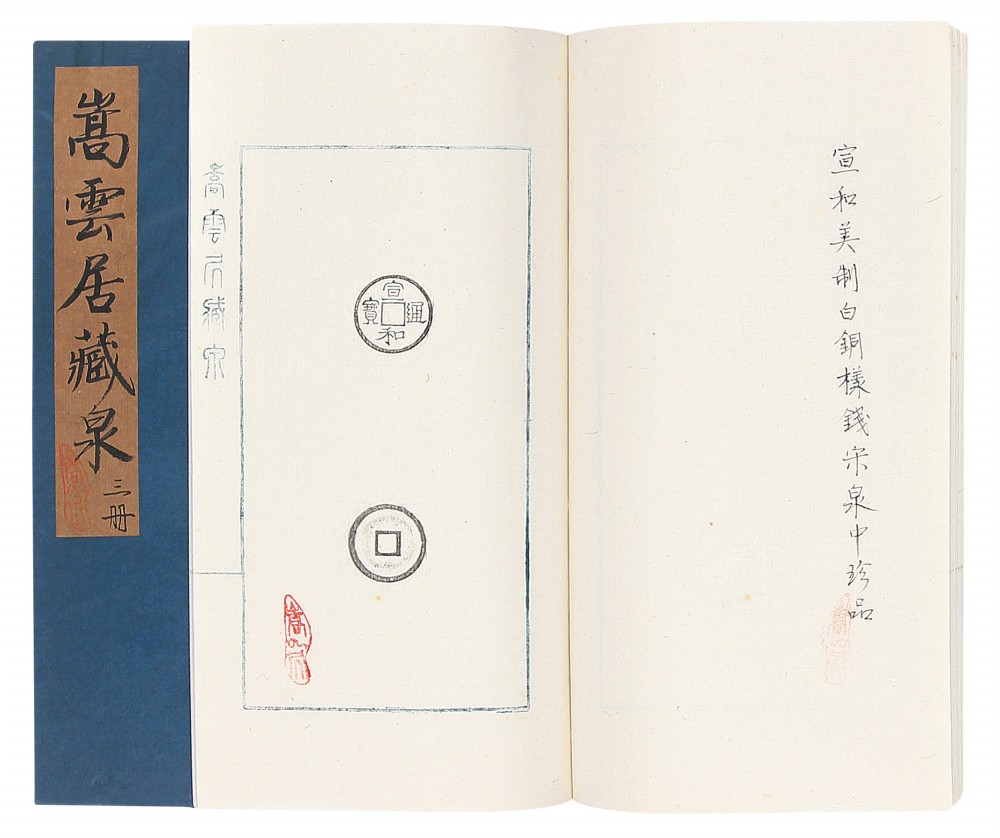 嵩雲居藏泉
三册
嵩雲居藏泉
宣和通寶
宣和美制白銅樣錢宋泉中珍品